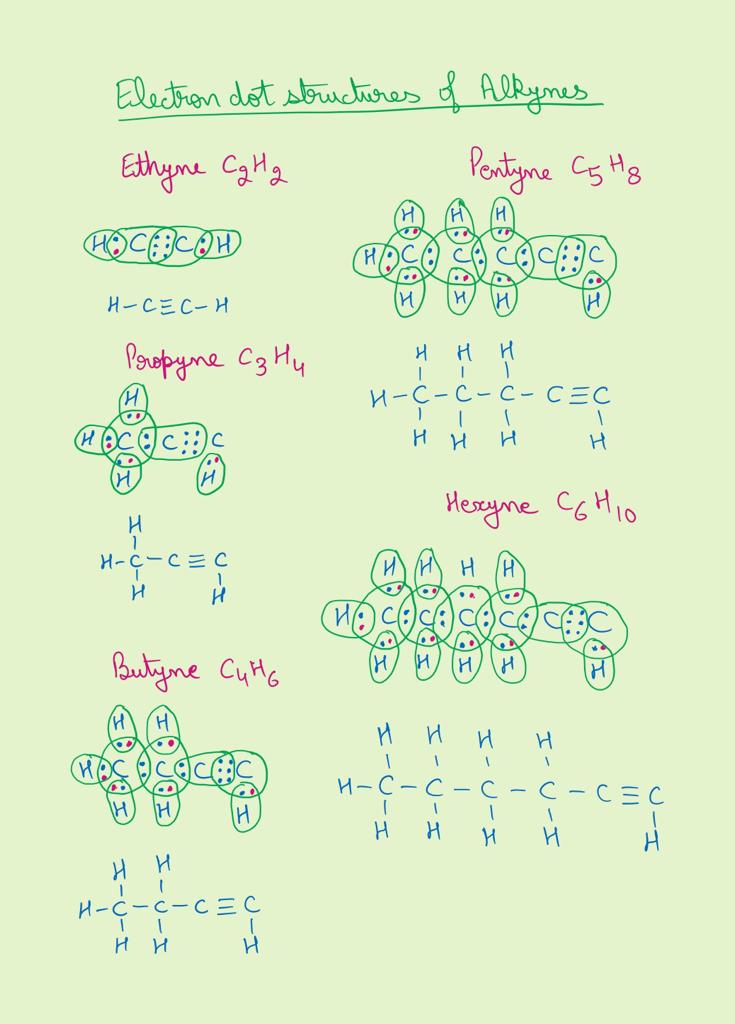 Electron dot structures of Alkynes
Ethyne C2H2
H C C H
H-C≡C-H
Propyne C3H4
H
H C C C
H H
H
H-C-C≡C
H H
Butyne C4H6
H H
H C C C C
H H H
H H
H-C-C-C≡C
H H H
Pentyne C5H8
H H H
H C C C C C
H H H H
H H H
H-C-C-C-C≡C
H H H H
Hexyne C6H10
H H H H
H C C C C C C
H H H H H
H H H H
H-C-C-C-C-C≡C
H H H H H